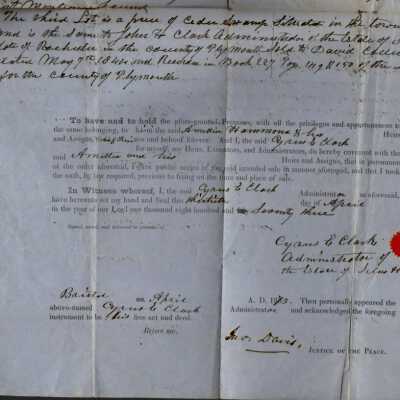 The third Lot is a piece of Cedar Swamp Situated in the town
and is the same John H Clark Administrator of the Estate of
late of Rochester in the County of Plymouth Sold to David
May 7th 18 and Recorded in Book 227 Page 149 & 150 of the
for the County of Plymouth
To have and to hold the afore-granted Premises, with all the privileges and appurtenances to
the same belonging, to him the said Hammond & his
and Assigns, to his use and behoof forever. And I, the said Cyrus E Clark
for myself, my Heirs, Executors, and Administrators, do hereby covenant with the
said and his Heirs and Assigns, that in pursuance
of the order aforesaid, I gave public notice of the said intended sale in manner aforesaid, and that I took
the oath by law required, previous to fixing on the time and place of sale.
In Witness whereof, I, the said Cyrus E Clark Administrator
have hereunto set my hand and Seal this day of April
in the year of our Lord one thousand eight hundred and Seventy three
Signed, sealed, and delivered in presence of
Cyrus E Clark
Administrator of
the Estate of
Bristol on April A. D. 1873. Then personally appeared the
above-named Cyrus E Clark Administrator and acknowledged the foregoing
instrument to be his free act and deed.
Before me,
Jno. Davis, JUSTICE OF THE PEACE.